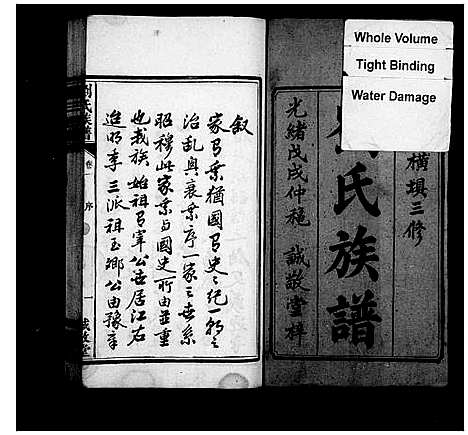 Whole Volume
Tight Binding
Water Damage
橫塤三修
氏族譜
光緒戊戌仲穐 誠敬堂梓
叙
家皆乘猶國皆史之紀一朝之
治亂興衰乘序一家之世系
昭穆此家乘与國史所由並重
也我族 始祖 公世居江右
迨明季三派祖玉 公由豫章
劉氏族譜
卷一
序
一
誠敬堂